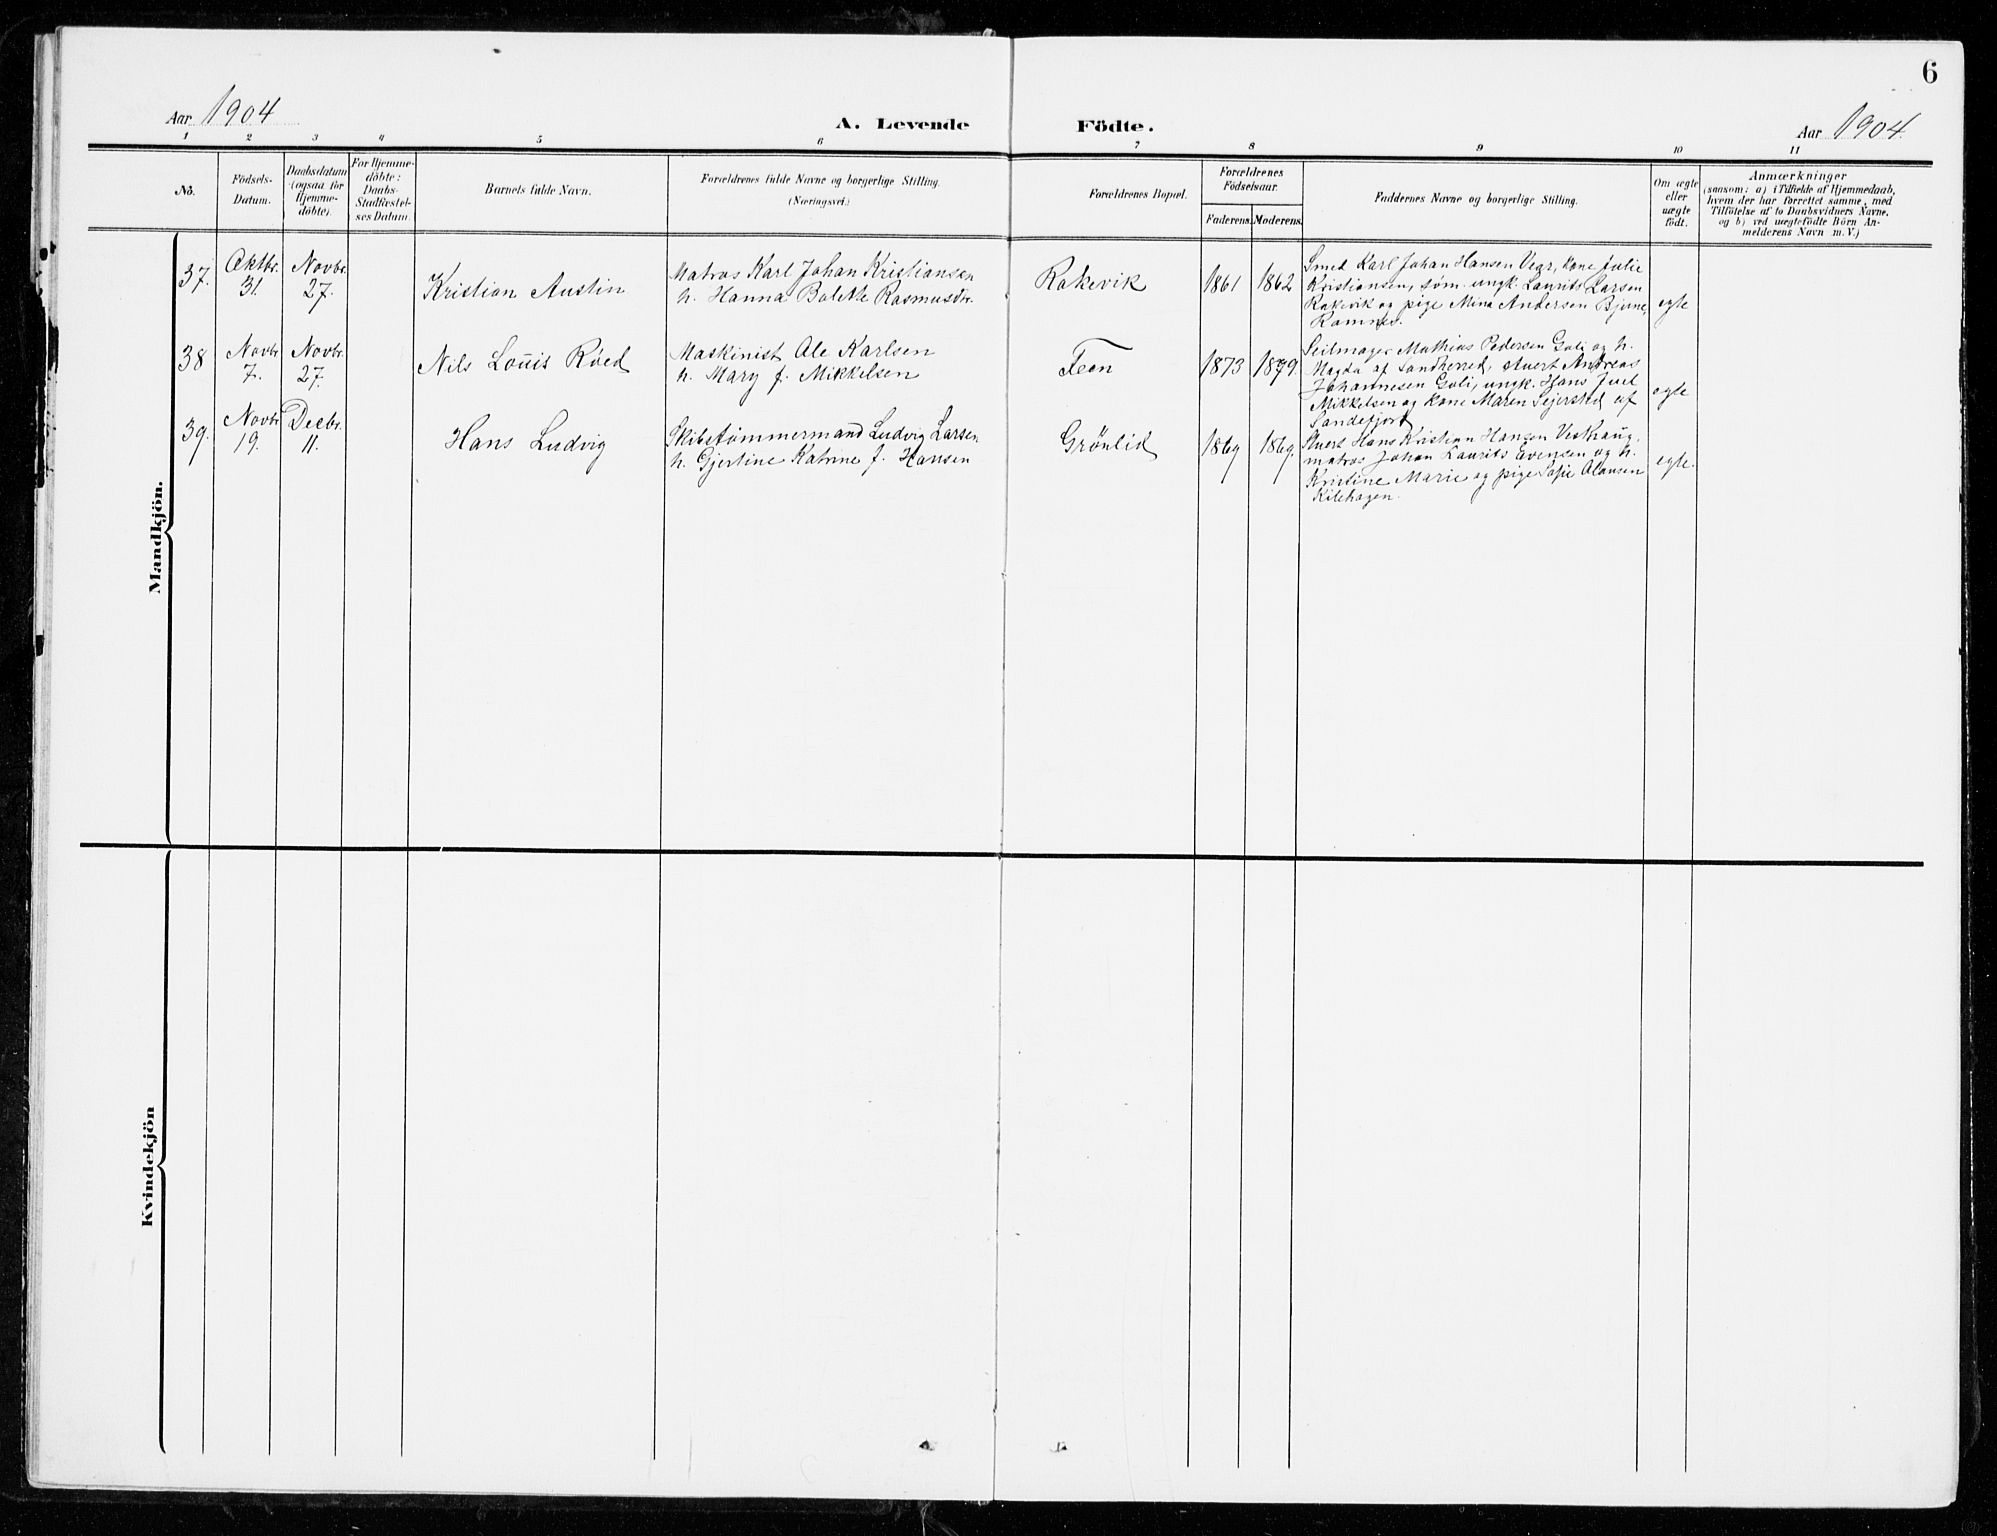 6
Aar 1904
A. Levende Födte.
Aar 1904.
1 2 3 4 5 6 7 8 9 10 11
No.
Födsels-
Datum.
Daabsdatum
(ogsaa for
Hjemme-
döbte).
For Hjemme-
döbte:
Daabs-
Stadfæstel-
ses Datum.
Barnets fulde Navn.
Forældrenes fulde Navne og borgerlige Stilling.
(Næringsvei.)
Forældrenes Bopæl.
Forældrenes
Födselsaar.
Faderens.
Moderens.
Faddernes Navne og borgerlige Stilling.
Om ægte
eller
uægte
født.
Anmærkninger
(saasom: a) i Tilfælde af Hjemmedaab,
hvem der har forrettet samme, med
Tilføielse af to Daabsvidners Navne,
og b) ved uægtefødte Börn An-
melderens Navn m. V.)
Mandkjön.
37.
Oktbr.
31.
Novbr.
27.
Kristian Austin
Matros Karl Johan Kristiansen
h. Hanna Bolette Rasmusdtr.
Rakevik
1861
1862
Smed Karl Johan Hansen Vegr, kone Julie
Kristiansen, søm. ungk. Laurits Larsen
Rakevik og pige Mina Andersen Bjune,
Ramnes.
egte
38
Novbr.
7.
Novbr.
27.
Nils Louis Røed
Maskinist Ole Karlsen
h. Mary f. Mikkelsen
Feen
1873
1879.
Seilmager Mathias Pedersen Goli og h.
Magda af Sandherred, stuert Andreas
Johannesen Goli, ungk. Hans Juel
Mikkelsen og kone Maren Sejersted af
Sandefjord
egte
39.
Novbr.
19.
Decbr.
11.
Hans Ludvig
Skibstømmermand Ludvig Larsen
h. Gjertine Katrine f. Hansen
Grönlid
1869
1869.
Stuert Hans Kristian Hansen Veskaug,
matros Johan Laurits Evensen og h.
Kristine Marie og pige Sofie Olausen
Kilehagen.
egte.
Kvindekjön